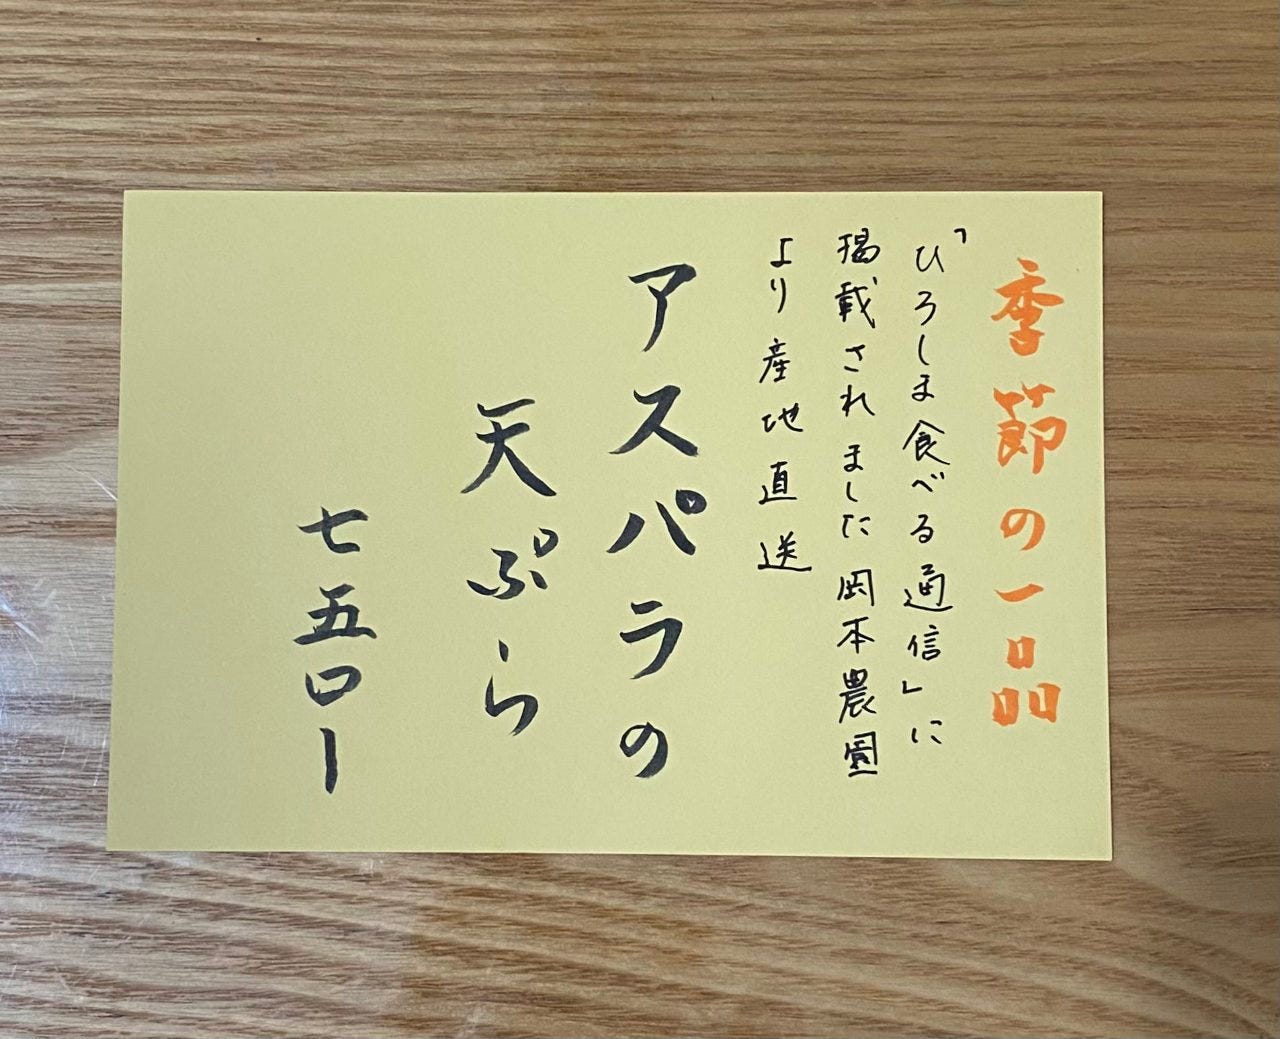 季節の一品
「ひろしま食べる通信」に
掲載されました岡本農園
より産地直送
アスパラの
天ぷら
七五〇ー